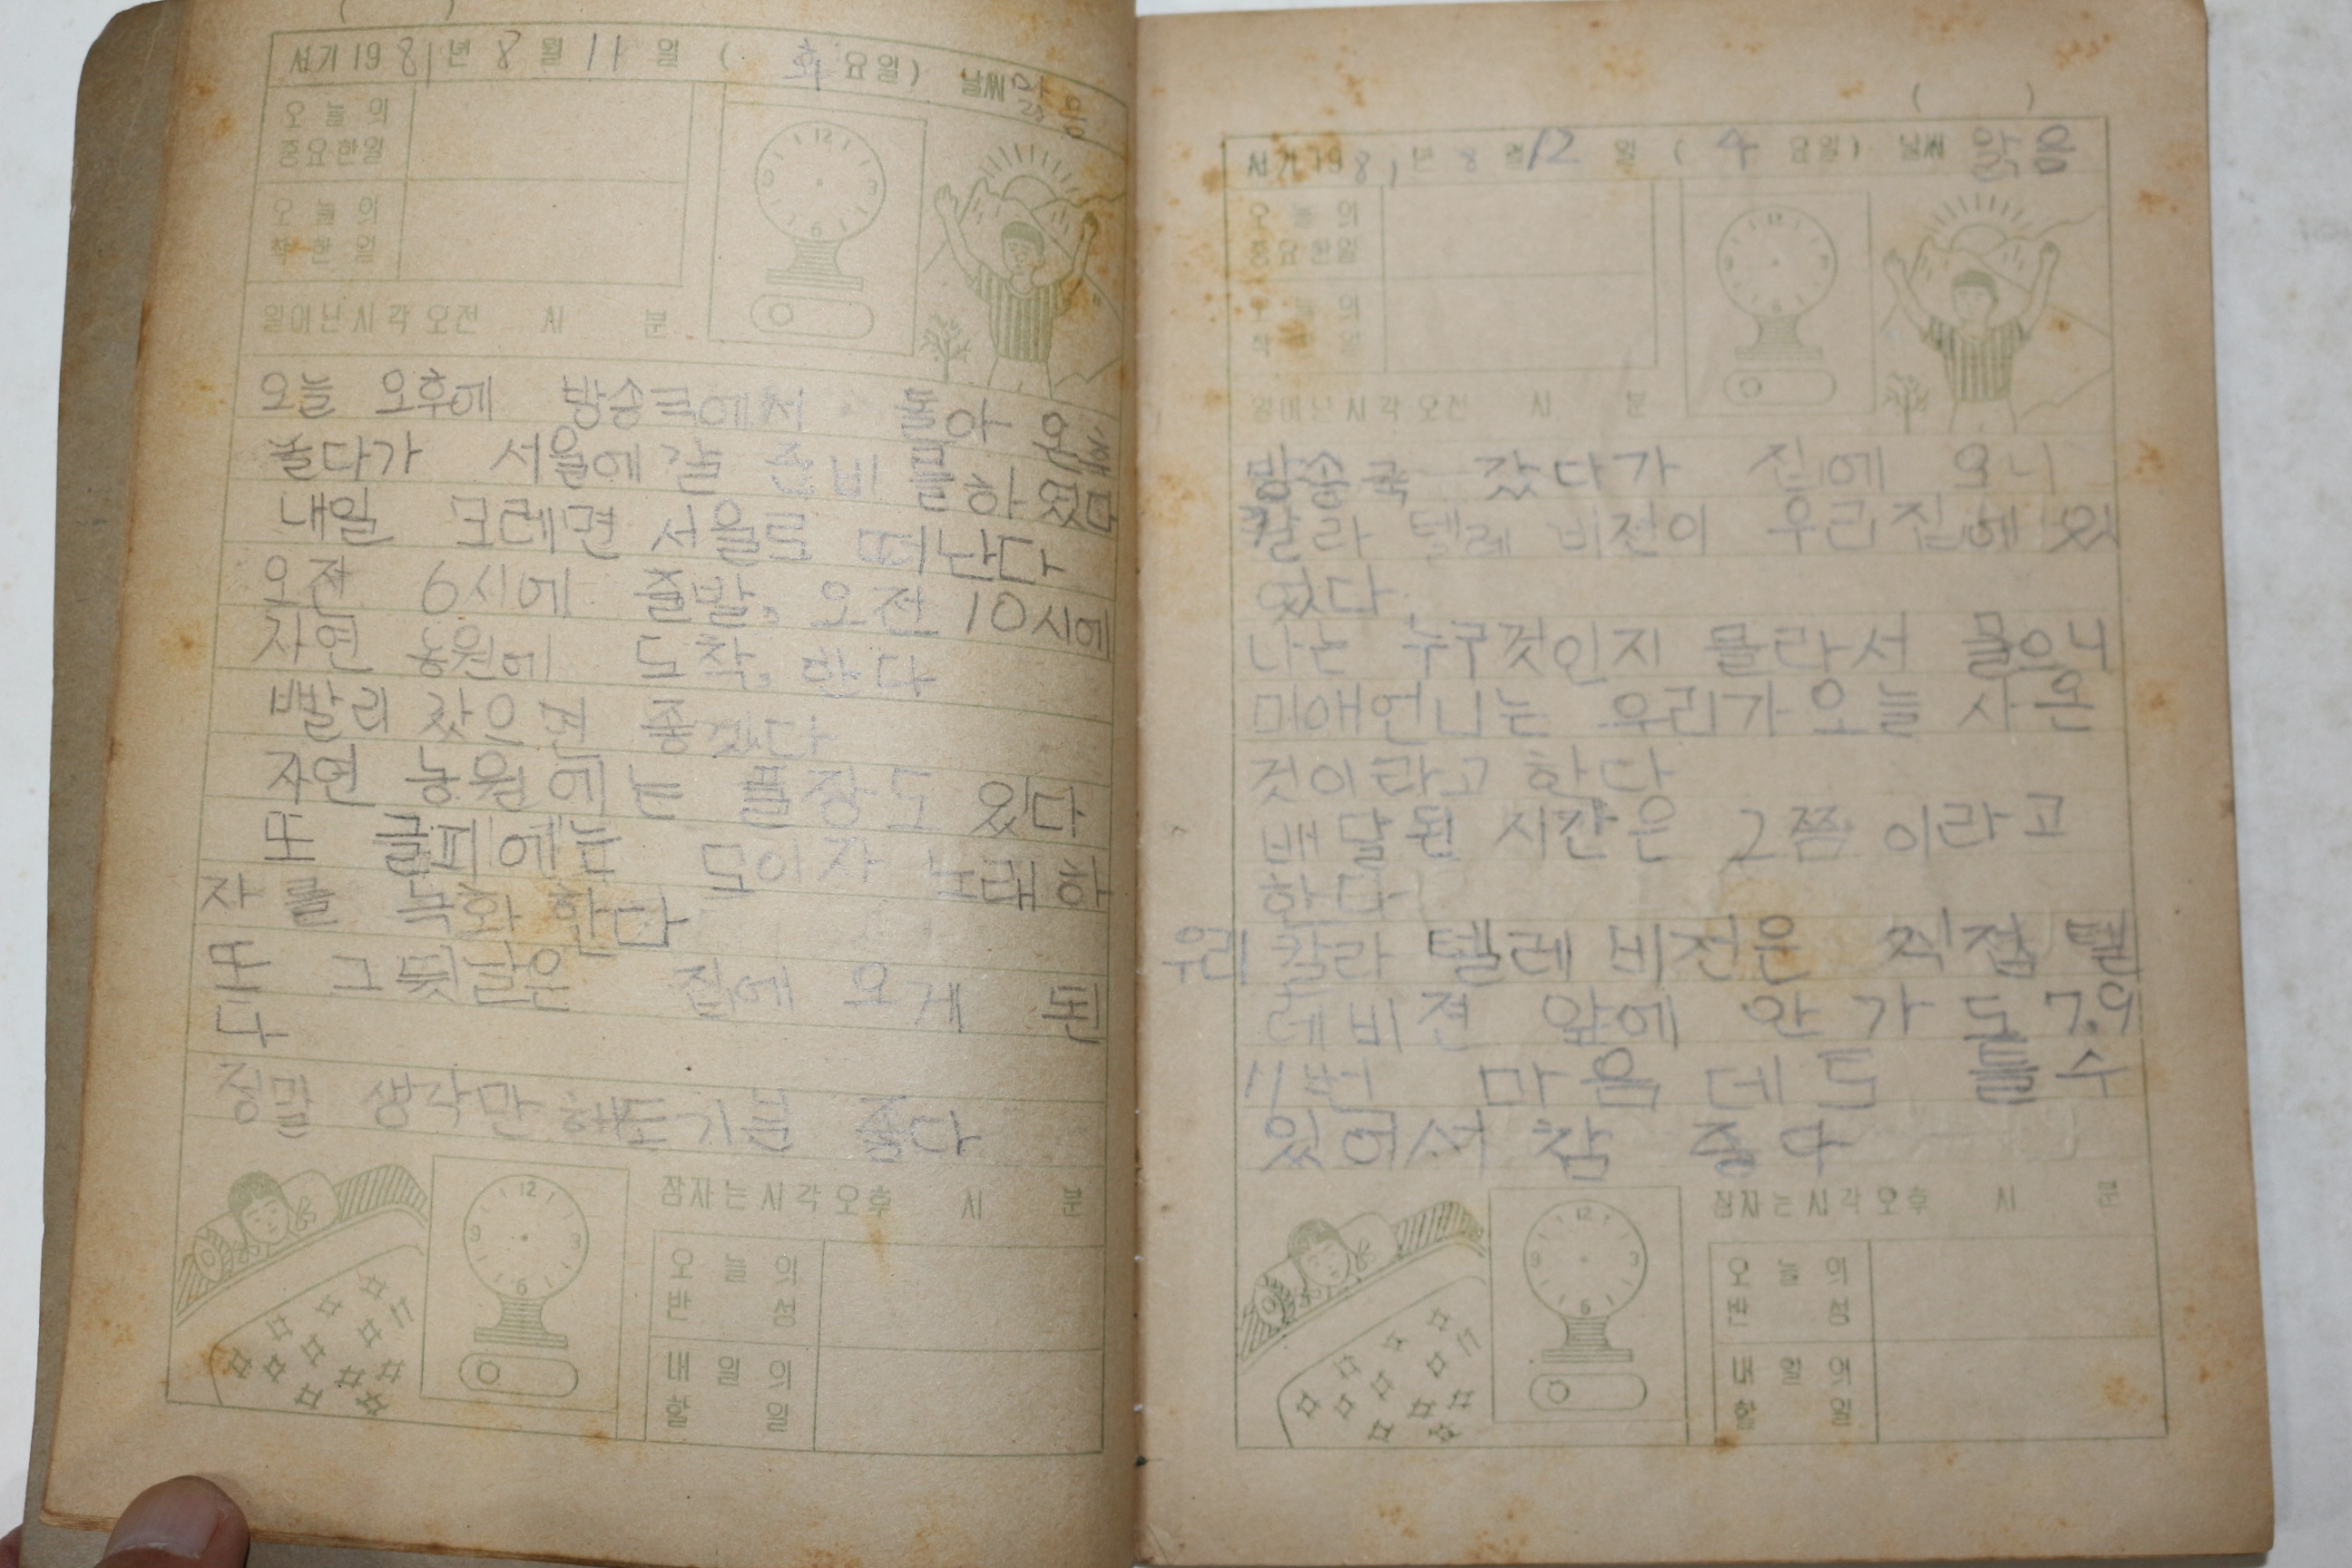 서기 1981년 8월 11일 ( 화요일) 날씨 맑음
오늘의
중요한일
오늘의
착한일
일어난시각 오전 시 분
오늘 오후에 방송국에서 돌아 온후
놀다가 서울에 갈 준비를 하였다
내일 모레면 서울로 떠난다
오전 6시에 출발, 오전 10시에
자연 농원에 도착, 한다
빨리 갔으면 좋겠다
자연 농원에는 풀장도 있다
또 글피에는 모이자 노래하
자를 녹화 한다
또 그 뒷날은 집에 오게 된
다
정말 생각만 해도 기분 좋다
잠자는시각 오후 시 분
오늘의
반성
내일의
할일
서기 1981년 8월 12일 ( 수요일) 날씨 맑음
오늘의
중요한일
오늘의
착한일
일어난시각 오전 시 분
방송국 갔다가 집에 오니
칼라 텔레비전이 우리집에 있
었다.
나는 누구것인지 몰라서 물으니
미애언니는 우리가 오늘 사온
것이라고 한다
배달된 시간은 2쯤 이라고
한다
우리 칼라 텔레비전은 직접 텔
레비젼 앞에 안 가도 7.9
11번 마음데로 틀수
있어서 참 좋다
잠자는시각 오후 시 분
오늘의
반성
내일의
할일